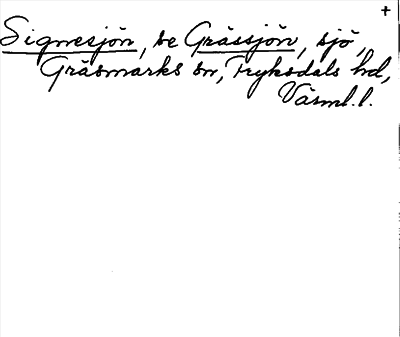 +
Signesjön, se Grässjön, sjö,
Gräsmarks sn, Fryksdals hd,
Värml. l.